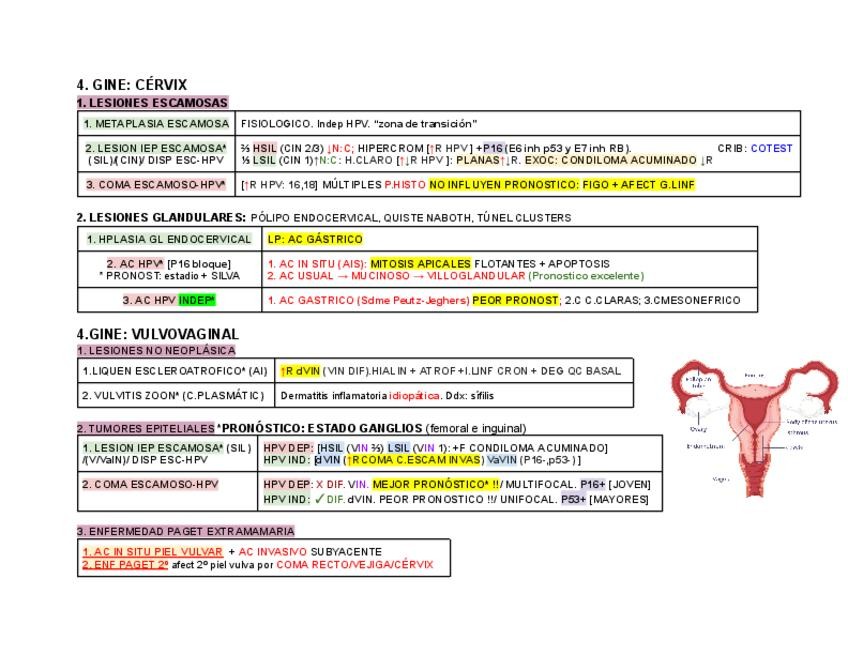 4. GINE: CÉRVIX
1. LESIONES ESCAMOSAS
1. METAPLASIA ESCAMOSA FISIOLOGICO. Indep HPV. "zona de transición"
2. LESION IEP ESCAMOSA* ⅔ HSIL (CIN 2/3) ↓N:C; HIPERCROM [↑R HPV] +P16 (E6 inh p53 y E7 inh RB). CRIB: COTEST
(SIL)/(CIN)/ DISP ESC-HPV ⅓ LSIL (CIN 1)↑N:C: H.CLARO [↑↓R HPV]: PLANAS↑↓R. EXOC: CONDILOMA ACUMINADO ↓R
3. COMA ESCAMOSO-HPV* [↑R HPV: 16,18] MÚLTIPLES P.HISTO NO INFLUYEN PRONOSTICO: FIGO + AFECT G.LINF
2. LESIONES GLANDULARES: PÓLIPO ENDOCERVICAL, QUISTE NABOTH, TÚNEL CLUSTERS
1. HPLASIA GL ENDOCERVICAL LP: AC GÁSTRICO
2. AC HPV* [P16 bloque] 1. AC IN SITU (AIS): MITOSIS APICALES FLOTANTES + APOPTOSIS
* PRONOST: estadio + SILVA 2. AC USUAL → MUCINOSO → VILLOGLANDULAR (Pronostico excelente)
3. AC HPV INDEP* 1. AC GASTRICO (Sdme Peutz-Jeghers) PEOR PRONOST; 2.C C.CLARAS; 3.CMESONEFRICO
4.GINE: VULVOVAGINAL
1. LESIONES NO NEOPLÁSICA
1.LIQUEN ESCLEROATROFICO* (AI) ↑R dVIN (VIN DIF).HIALIN + ATROF +I.LINF CRON + DEG QC BASAL
2. VULVITIS ZOON* (C.PLASMÁTIC) Dermatitis inflamatoria idiopática. Ddx: sífilis
2. TUMORES EPITELIALES *PRONÓSTICO: ESTADO GANGLIOS (femoral e inguinal)
1. LESION IEP ESCAMOSA* (SIL) HPV DEP: [HSIL (VIN ⅔) LSIL (VIN 1): +F CONDILOMA ACUMINADO]
/(V/VaIN)/ DISP ESC-HPV HPV IND: [dVIN (↑RCOMA C.ESCAM INVAS) VaVIN (P16-,p53-)]
2. COMA ESCAMOSO-HPV HPV DEP: X DIF. VIN. MEJOR PRONÓSTICO* !!/ MULTIFOCAL. P16+ [JOVEN]
HPV IND: ✓ DIF. dVIN. PEOR PRONOSTICO !!/ UNIFOCAL. P53+ [MAYORES]
3. ENFERMEDAD PAGET EXTRAMAMARIA
1. AC IN SITU PIEL VULVAR + AC INVASIVO SUBYACENTE
2. ENF PAGET 2º afect 2º piel vulva por COMA RECTO/VEJIGA/CÉRVIX
Fallopian
tube
Ovary
Endometrium
Body of the uterus
Vagina